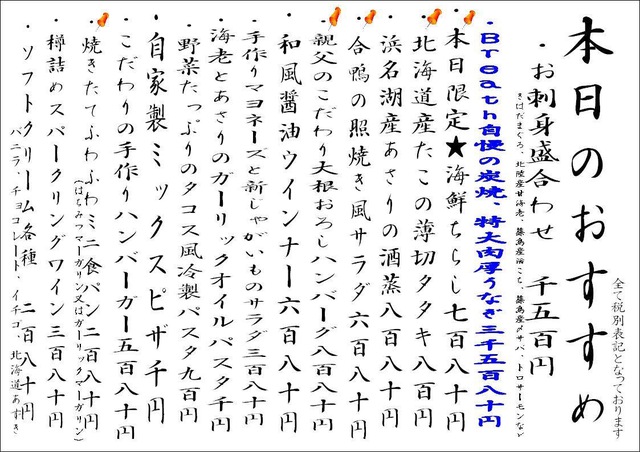 本日のおすすめ
全て税別表記となっております
・お刺身盛合わせ 千五百円
きはだまぐろ、北陸産甘海老、篠島産活こち、篠島産〆サバ、トロサーモンなど
・Breath自慢の炭焼、特大肉厚うなぎ三千五百八十円
・本日限定★海鮮ちらし七百八十円
・北海道産たこの薄切タタキ八百円
・浜名湖産あさりの酒蒸八百八十円
・合鴨の照焼き風サラダ六百八十円
・親父のこだわり大根おろしハンバーグ八百八十円
・和風醤油ウインナー六百八十円
・手作りマヨネーズと新じゃがいものサラダ三百八十円
・海老とあさりのガーリックオイルパスタ千円
・野菜たっぷりのタコス風冷製パスタ九百円
・自家製ミックスピザ千円
・こだわりの手作りハンバーガー五百八十円
・焼きたてふわふわミニ食パン二百八十円
(はちみつマーガリン又はガーリックマーガリン)
・樽詰めスパークリングワイン三百八十円
・ソフトクリーム各種 二百八十円
バニラ、チョコレート、イチゴ、北海道あずき